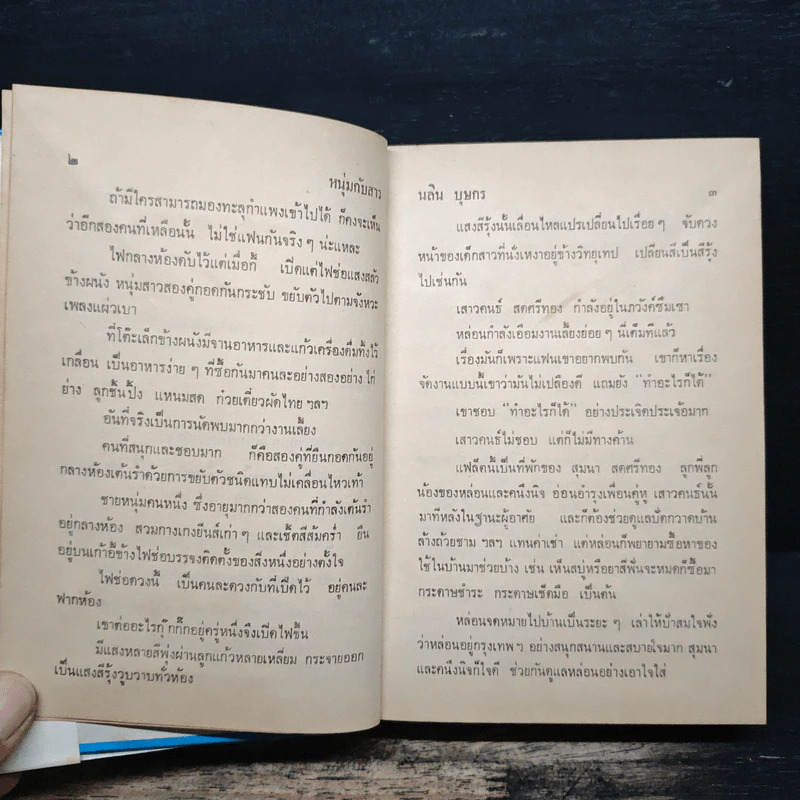 ๒
หนุ่มกับสาว
ถ้ามีใครสามารถมองทะลุกำแพงเข้าไปได้ ก็คงจะเห็น
ว่าอีกสองคนที่เหลือนั้น ไม่ใช่แฟนกันจริง ๆ น่ะแหละ
ไฟกลางห้องดับไว้แต่เมื่อกี้ เปิดแต่ไฟช่อแสงสลัว
ข้างผนัง หนุ่มสาวสองคู่กอดกันกระชับ ขยับตัวไปตามจังหวะ
เพลงแผ่วเบา
ที่โต๊ะเล็กข้างผนังมีจานอาหารและแก้วเครื่องดื่มทิ้งไว้
เกลื่อน เป็นอาหารง่าย ๆ ที่ซื้อกันมาคนละอย่างสองอย่าง ไก่
ย่าง ลูกชิ้นปิ้ง แหนมสด ก๋วยเตี๋ยวผัดไทย ฯลฯ
อันที่จริงเป็นการนัดพบมากกว่างานเลี้ยง
คนที่สนุกและชอบมาก ก็คือสองคู่ที่ยืนกอดกันอยู่
กลางห้องเต้นรำด้วยการขยับตัวชนิดแทบไม่เคลื่อนไหวเท้า
ชายหนุ่มคนหนึ่ง ซึ่งอายุมากกว่าสองคนที่กำลังเต้นรำ
อยู่กลางห้อง สวมกางเกงยีนส์เก่า ๆ และเช้ตสีส้มคร่ำ ยืน
อยู่บนเก้าอี้ข้างไฟช่อบรรจงติดตั้งของสิ่งหนึ่งอย่างตั้งใจ
ไฟช่อดวงนี้ เป็นคนละดวงกับที่เปิดไว้ อยู่คนละ
ฟากห้อง
เขาต่ออะไรกุ๊กกิ๊กอยู่ครู่หนึ่งจึงเปิดไฟขึ้น
มีแสงหลายสีพุ่งผ่านลูกแก้วหลายเหลี่ยม กระจายออก
เป็นแสงสีรุ้งวูบวาบทั่วห้อง
นลิน บุษกร
๓
แสงสีรุ้งนั้นเลื่อนไหลแปรเปลี่ยนไปเรื่อย ๆ จับดวง
หน้าของเด็กสาวที่นั่งเหงาอยู่ข้างวิทยุเทป เปลี่ยนสีเป็นสีรุ้ง
ไปเช่นกัน
เสาวคนธ์ สดศรีทอง กำลังอยู่ในภวังค์ซึมเซา
หล่อนกำลังเอือมงานเลี้ยงย่อยๆ นี่เต็มทีแล้ว
เรื่องมันก็เพราะแฟนเขาอยากพบกัน เขาก็หาเรื่อง
จัดงานแบบนี้เขาว่ามันไม่เปลืองดี แถมยัง "ทำอะไรก็ได้"
เขาชอบ "ทำอะไรก็ได้" อย่างประเจิดประเจ้อมาก
เสาวคนธ์ไม่ชอบ แต่ก็ไม่มีทางค้าน
แฟล็ตนี้เป็นที่พักของ สุมนา สดศรีทอง ลูกพี่ลูก
น้องของหล่อนและคนึงนิจ อ่อนอำรุงเพื่อนคู่หู เสาวคนธ์นั้น
มาทีหลังในฐานะผู้อาศัย และก็ต้องช่วยดูแลปัดกวาดบ้าน
ล้างถ้วยชาม ฯลฯ แทนค่าเช่า แต่หล่อนก็พยายามซื้อหาของ
ใช้ในบ้านมาช่วยบ้าง เช่น เห็นสบู่หรือยาสีฟันจะหมดก็ซื้อมา
กระดาษชำระ กระดาษเช็ดมือ เป็นต้น
หล่อนจดหมายไปบ้านเป็นระยะ ๆ เล่าให้ป้าสมใจฟัง
ว่าหล่อนอยู่กรุงเทพฯ อย่างสนุกสนานและสบายใจมาก สุมนา
และคนึงนิจก็ใจดี ช่วยกันดูแลหล่อนอย่างเอาใจใส่